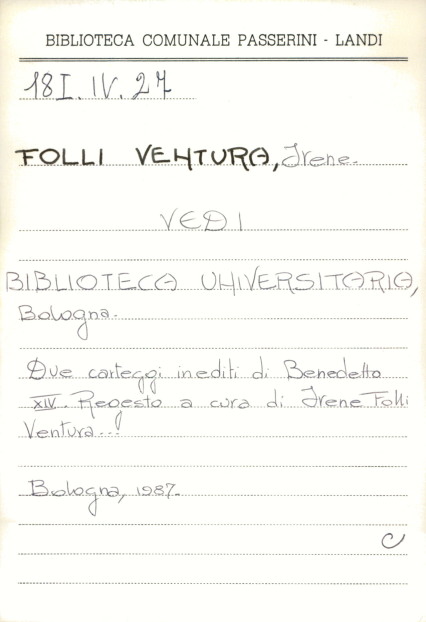 BIBLIOTECA COMUNALE PASSERINI - LANDI
18I. IV. 27
FOLLI VENTURA, Irene.
VEDI
BIBLIOTECA UNIVERSITARIA,
Bologna.
Due carteggi inediti di Benedetto
XIV. Regesto a cura di Irene Folli
Ventura...!
Bologna, 1987.
C